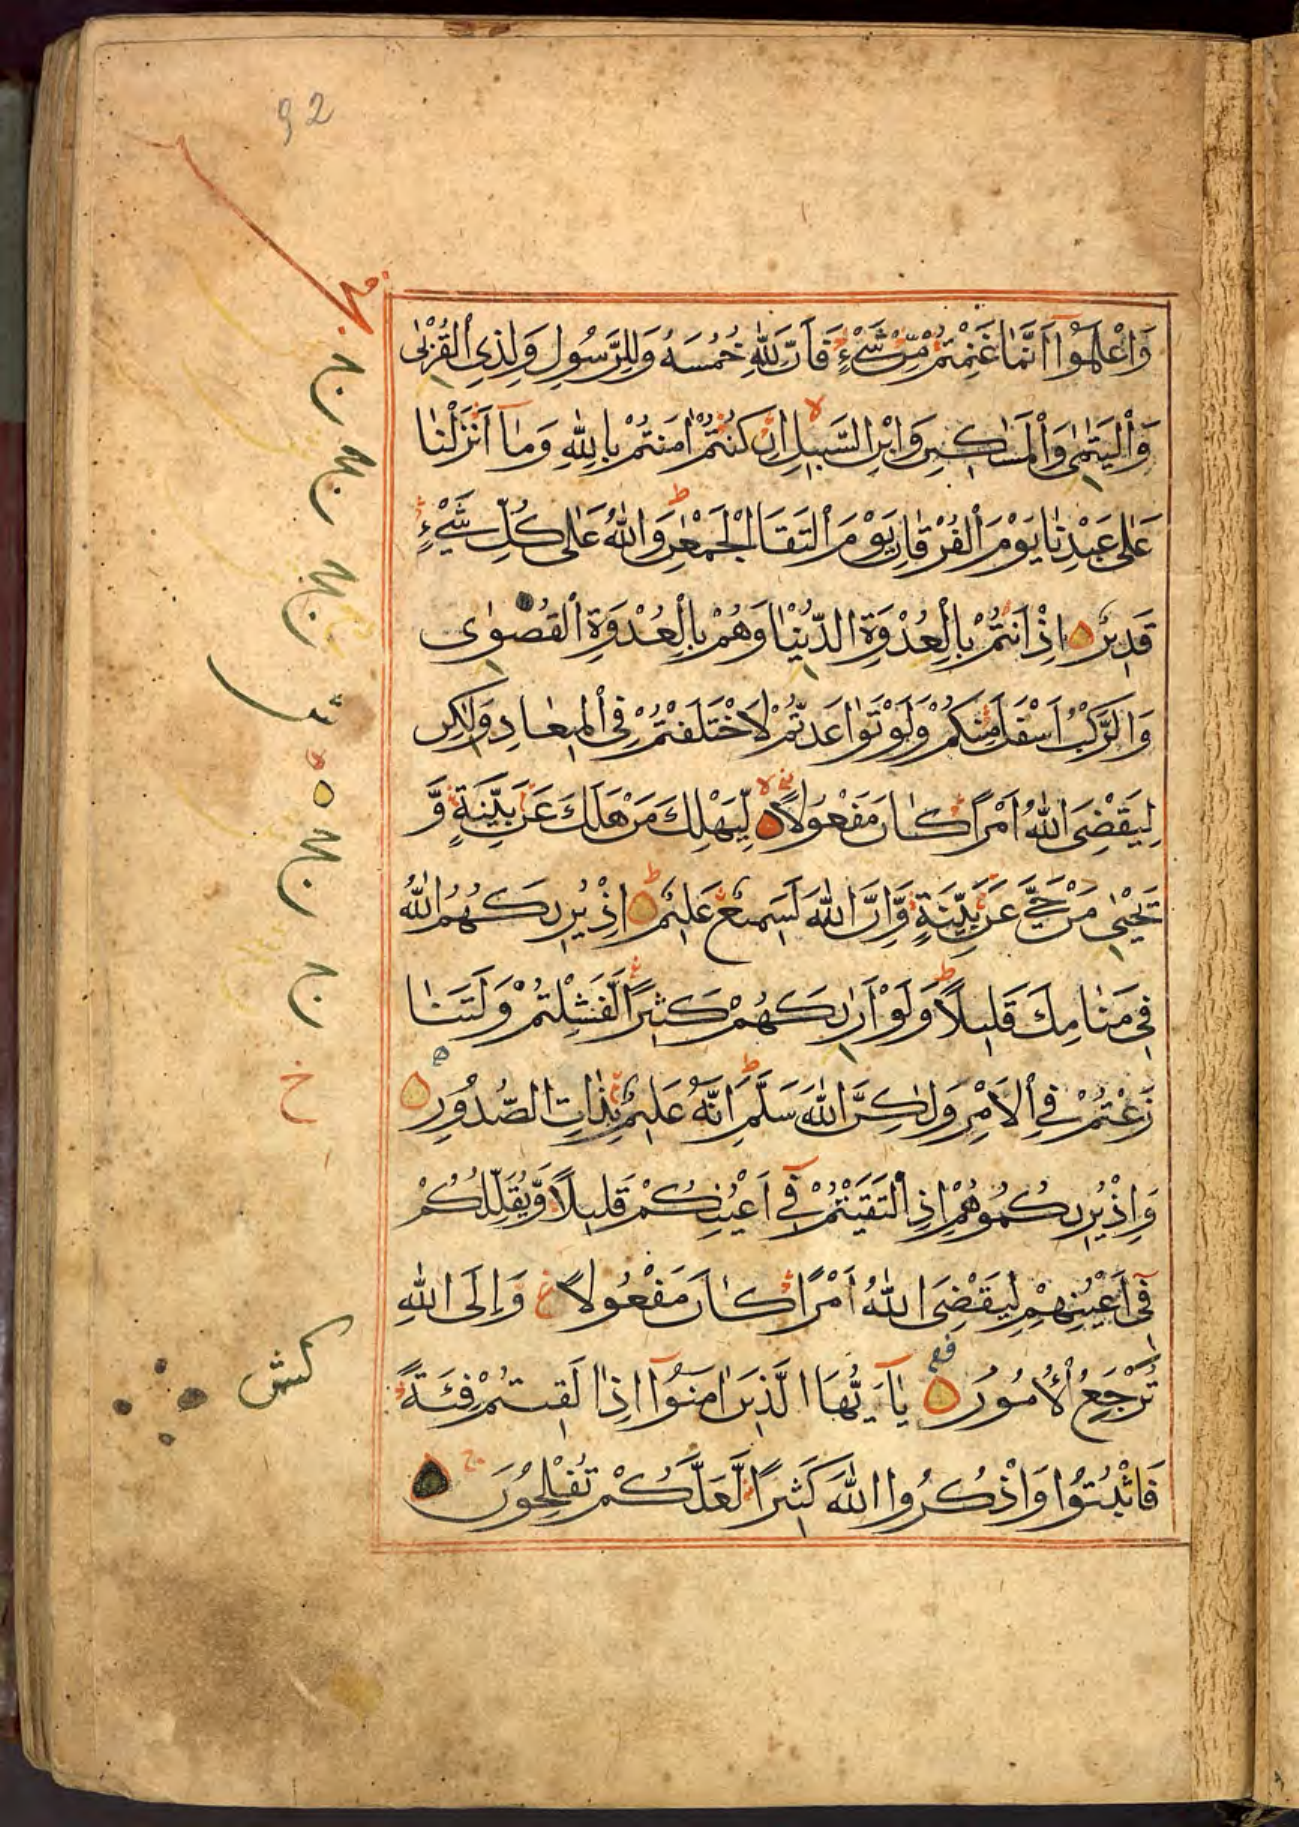 92
وَاعْلَمُوٓا اَنَّمَا غَنِمْتُمْ مِّنْ شَيْءٍ فَاَنَّ لِلّٰهِ خُمُسَهٗ وَلِلرَّسُولِ وَلِذِي الْقُرْبٰى
وَالْيَتٰمٰى وَالْمَسَاكِينِ وَابْنِ السَّبِيلِ اِنْ كُنْتُمْ اٰمَنْتُمْ بِاللّٰهِ وَمَآ اَنْزَلْنَا
عَلٰى عَبْدِنَا يَوْمَ الْفُرْقَانِ يَوْمَ الْتَقَا الْجَمْعٰنِ وَاللّٰهُ عَلٰى كُلِّ شَيْءٍ
قَدِيرٌ اِذْ اَنْتُمْ بِالْعُدْوَةِ الدُّنْيَا وَهُمْ بِالْعُدْوَةِ الْقُصْوٰى
وَالرَّكْبُ اَسْفَلَ مِنْكُمْ وَلَوْ تَوَاعَدْتُّمْ لَاخْتَلَفْتُمْ فِي الْمِيعَادِ وَلٰكِنْ
لِيَقْضِيَ اللّٰهُ اَمْرًا كَانَ مَفْعُولًا لِّيَهْلِكَ مَنْ هَلَكَ عَنْ بَيِّنَةٍ وَّ
يَحْيٰى مَنْ حَيَّ عَنْ بَيِّنَةٍ وَّاِنَّ اللّٰهَ لَسَمِيعٌ عَلِيمٌ اِذْ يُرِيكَهُمُ اللّٰهُ
فِي مَنَامِكَ قَلِيلًا وَلَوْ اَرٰىكَهُمْ كَثِيرًا لَّفَشِلْتُمْ وَلَتَنَا
زَعْتُمْ فِي الْاَمْرِ وَلٰكِنَّ اللّٰهَ سَلَّمَ اِنَّهٗ عَلِيمٌ بِذَاتِ الصُّدُورِ
وَاِذْ يُرِيكُمُوهُمْ اِذِ الْتَقَيْتُمْ فِيٓ اَعْيُنِكُمْ قَلِيلًا وَّيُقَلِّلُكُمْ
فِيٓ اَعْيُنِهِمْ لِيَقْضِيَ اللّٰهُ اَمْرًا كَانَ مَفْعُولًا وَاِلَى اللّٰهِ
تُرْجَعُ الْاُمُورُ يَآ اَيُّهَا الَّذِينَ اٰمَنُوٓا اِذَا لَقِيتُمْ فِئَةً
فَاثْبُتُوا وَاذْكُرُوا اللّٰهَ كَثِيرًا لَّعَلَّكُمْ تُفْلِحُونَ